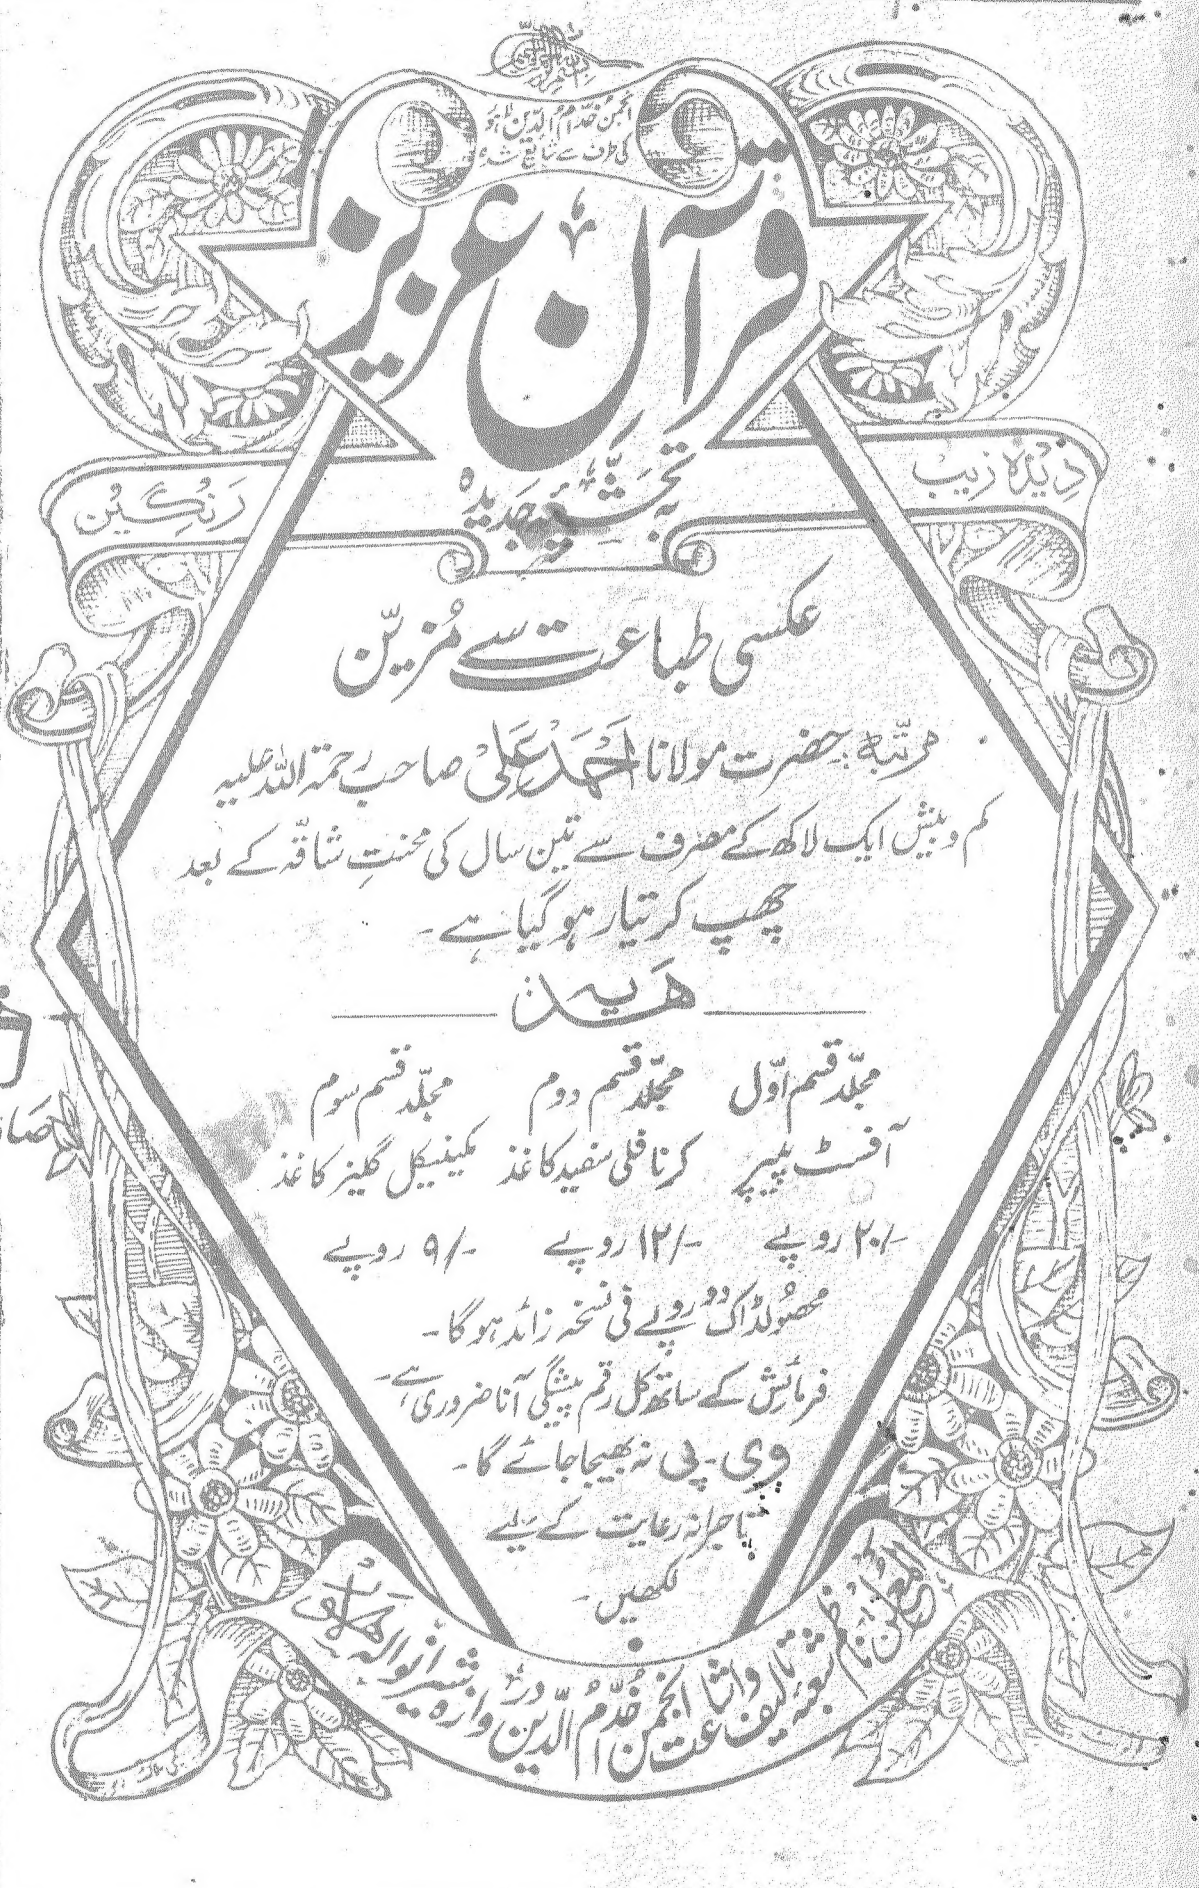 بسم اللہ الرحمن الرحیم
انجمن خدّام الدّین لاہور
کی طرف سے شائع شدہ
قرآن عزیز
دیدہ زیب
بہ تحشیۂ جدیدہ
رنگین
عکسی طباعت سے مُزیّن
مرتبہ: حضرت مولانا احمد علی صاحب رحمۃ اللہ علیہ
کم و بیش ایک لاکھ کے مصرف سے تین سال کی محنتِ شاقّہ کے بعد
چھپ کر تیار ہو گیا ہے۔
ھدیہ
مجلّد قسم اوّل مجلّد قسم دوم مجلّد قسم سوم
آفسٹ پیپر کرنافلی سفید کاغذ مکینیکل گلیز کاغذ
۲۰/- روپے ۱۲/- روپے ۹/- روپے
محصُولڈاک دو روپے فی نسخہ زائد ہو گا۔
فرمائش کے ساتھ کل رقم پیشگی آنا ضروری ہے۔
وی۔پی نہ بھیجا جائے گا۔
تاجرانہ رعایت کے لیے
لکھیں۔
المعلن: ناظم شعبۂ تالیف و اشاعت انجمن خدّام الدّین دروازہ شیرانوالہ لاہور